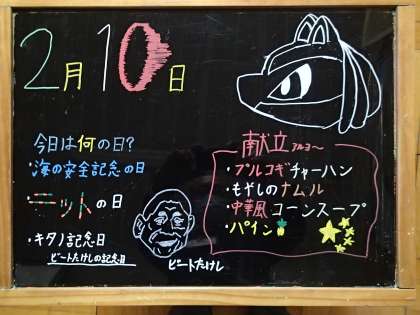 2月10日
今日は何の日?
・海の安全記念の日
・ニットの日
・キタノ記念日
ビートたけしの記念日
ビートたけし
献立アルヨ〜
・プルコギチャーハン
・もやしのナムル
・中華風コーンスープ
・パイン